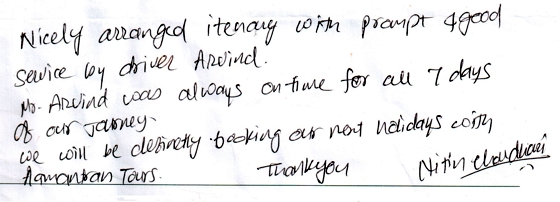 Nicely arranged itenary with prompt & good
Service by driver Arvind.
Mr. Arvind was always on-time for all 7 days
Of our Journey.
we will be definetly booking our next holidays with
Aamantran Tours. Thankyou Nitin Chaudhari